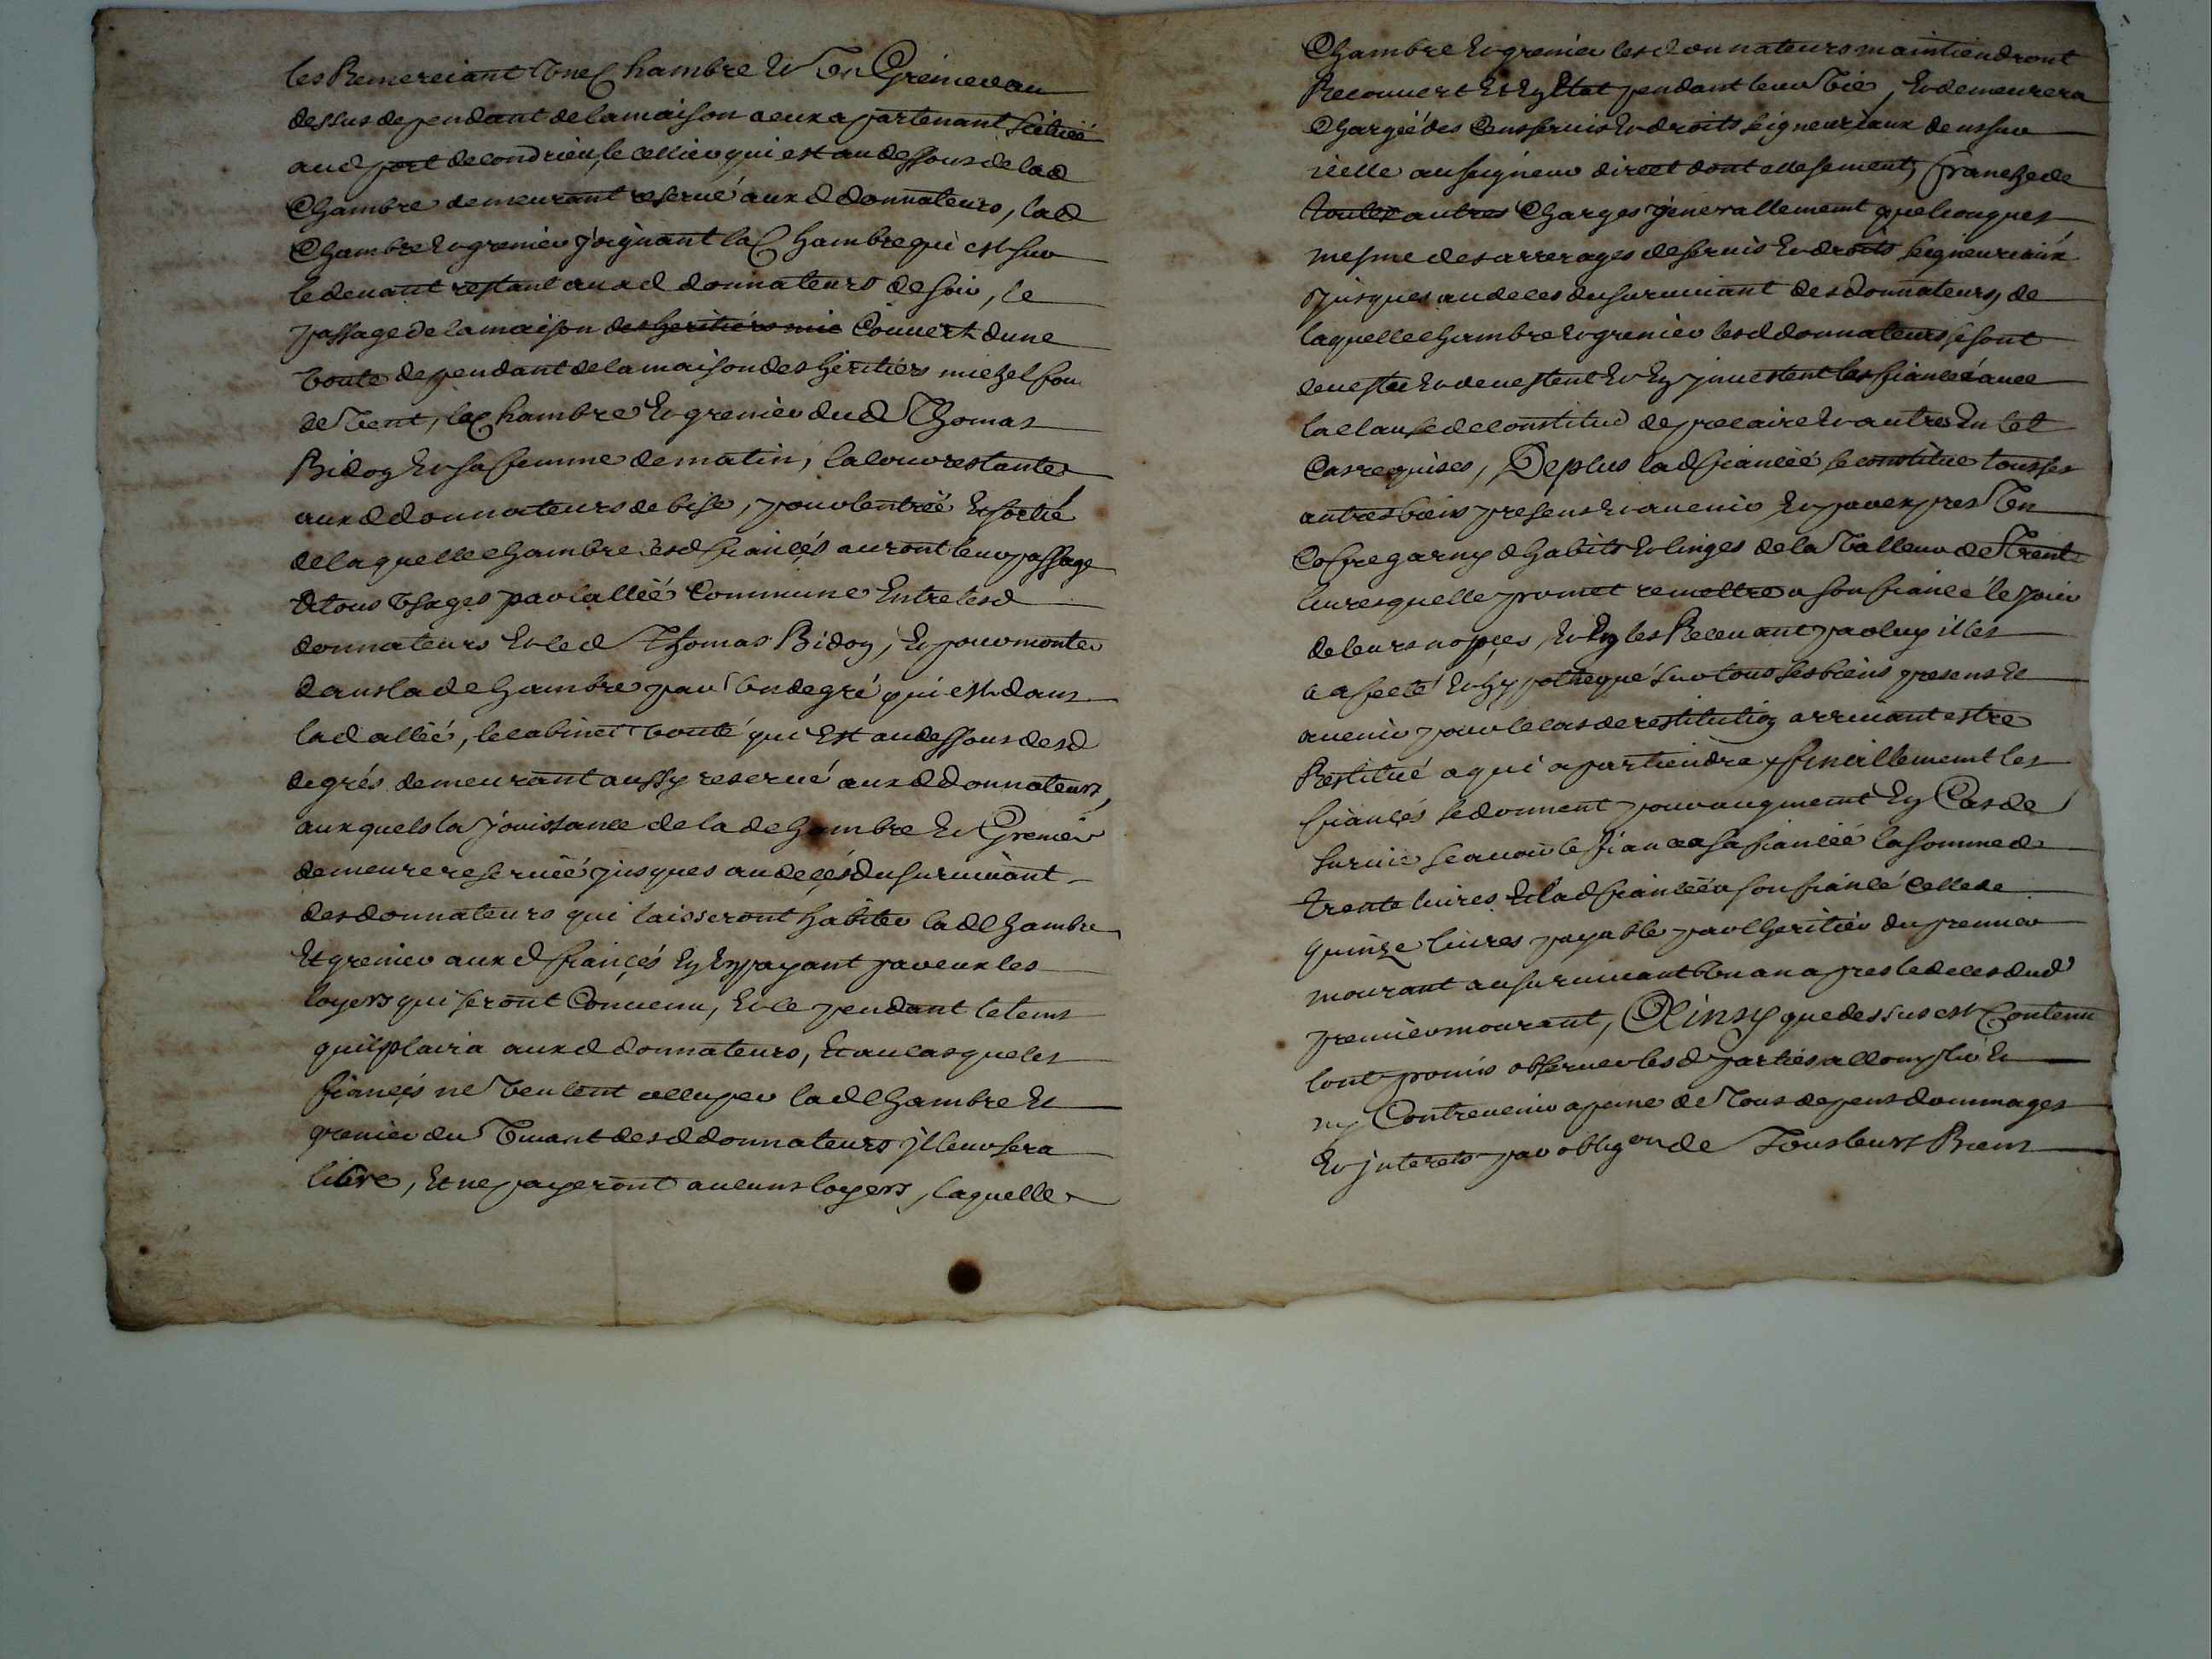 les Remerciant une Chambre et un Grenier au
dessus dependant de la maison a eux apartenant scitueé
aud port de condrieu, le cellier qui est au dessous de lad
Chambre demeurant reservé aux d donnateurs, lad
Chambre et grenier joignant la Chambre qui est sur
le devant restant aux d donnateurs de soir, le
passage de la maison des heritiers mic Couvert dune
voute dependant de la maison des heritiers michel
de vent, la Chambre et grenier dud Thomas
Bidon et sa femme de matin, la cour restante
aux d donnateurs de bise, pour lentreé et sortie
de laquelle chambre lesd fiancés auront leur passage
et tous usages par lalleé Commune Entre lesd
donnateurs et led Thomas Bidon, et pour monter
dans lad chambre par un degré qui est dans
lad alleé, le cabinet vouté qui Est au dessous desd
degrés demeurant aussy reservé aux d donnateurs,
aux quels la jouissance de lad chambre et Grenier
demeure reserveé jusques au decés du survivant
des donnateurs qui laisseront habiter lad Chambre
Et grenier aux d fiancés En En payant par eux les
loyers qui seront Convenu, et ce pendant le tems
quil plaira aux d donnateurs, Et au cas que les
fiancés ne veulent occuper lad Chambre Et
grenier du vivant desd donnateurs il leur sera
libre, Et ne payeront aucuns loyers, laquelle
Chambre et grenier lesd donnateurs maintiendront
Recouvert Et En Etat pendant leur vie, et demeurera
Chargeé des Cens servis et droits seigneuriaux deus sur
icelle au seigneur direct dont elles franche de
toutes autres Charges generallement quelconques
mesme des arrerages de servis et droits seigneuriaux
jusques au deces du survivant des donnateurs, de
laquelle chambre et grenier lesd donnateurs se sont
devestu et devestent et En investent les fiancés avec
la clause de constitut de precaire et autres En tel
Cas requises, De plus lad fianceé se constitue tous ses
autres biens presens et avenir et par expres un
Coffre garny dhabits et linges de la valleur de Trente
livres quelle promet remettre a son fiancé le jour
de leurs nopces, et En les Recevant par luy il les
a afecté et hypothequé sur tous ses biens presens et
avenir pour le cas de restitution arrivant estre
Restitué a qui apartiendra, finallement les
fiancés se donnent pour augment En Cas de
survie scavoir le fiancé a sa fianceé la somme de
trente livres Et lad fianceé a son fiancé Celle de
quinze livres payable par lheritier du premier
mourant au survivant un an apres le deces dud
premier mourant, Ainsy que dessus est Contenu
lont promis observer lesd parties accomplir et
ny Contrevenir a peine de Tous depens dommages
et interets par obligon de Tous leurs Biens